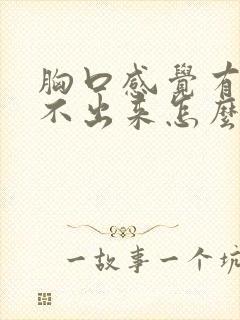 胸口感覺有
不出來怎麼
一故事一个坑